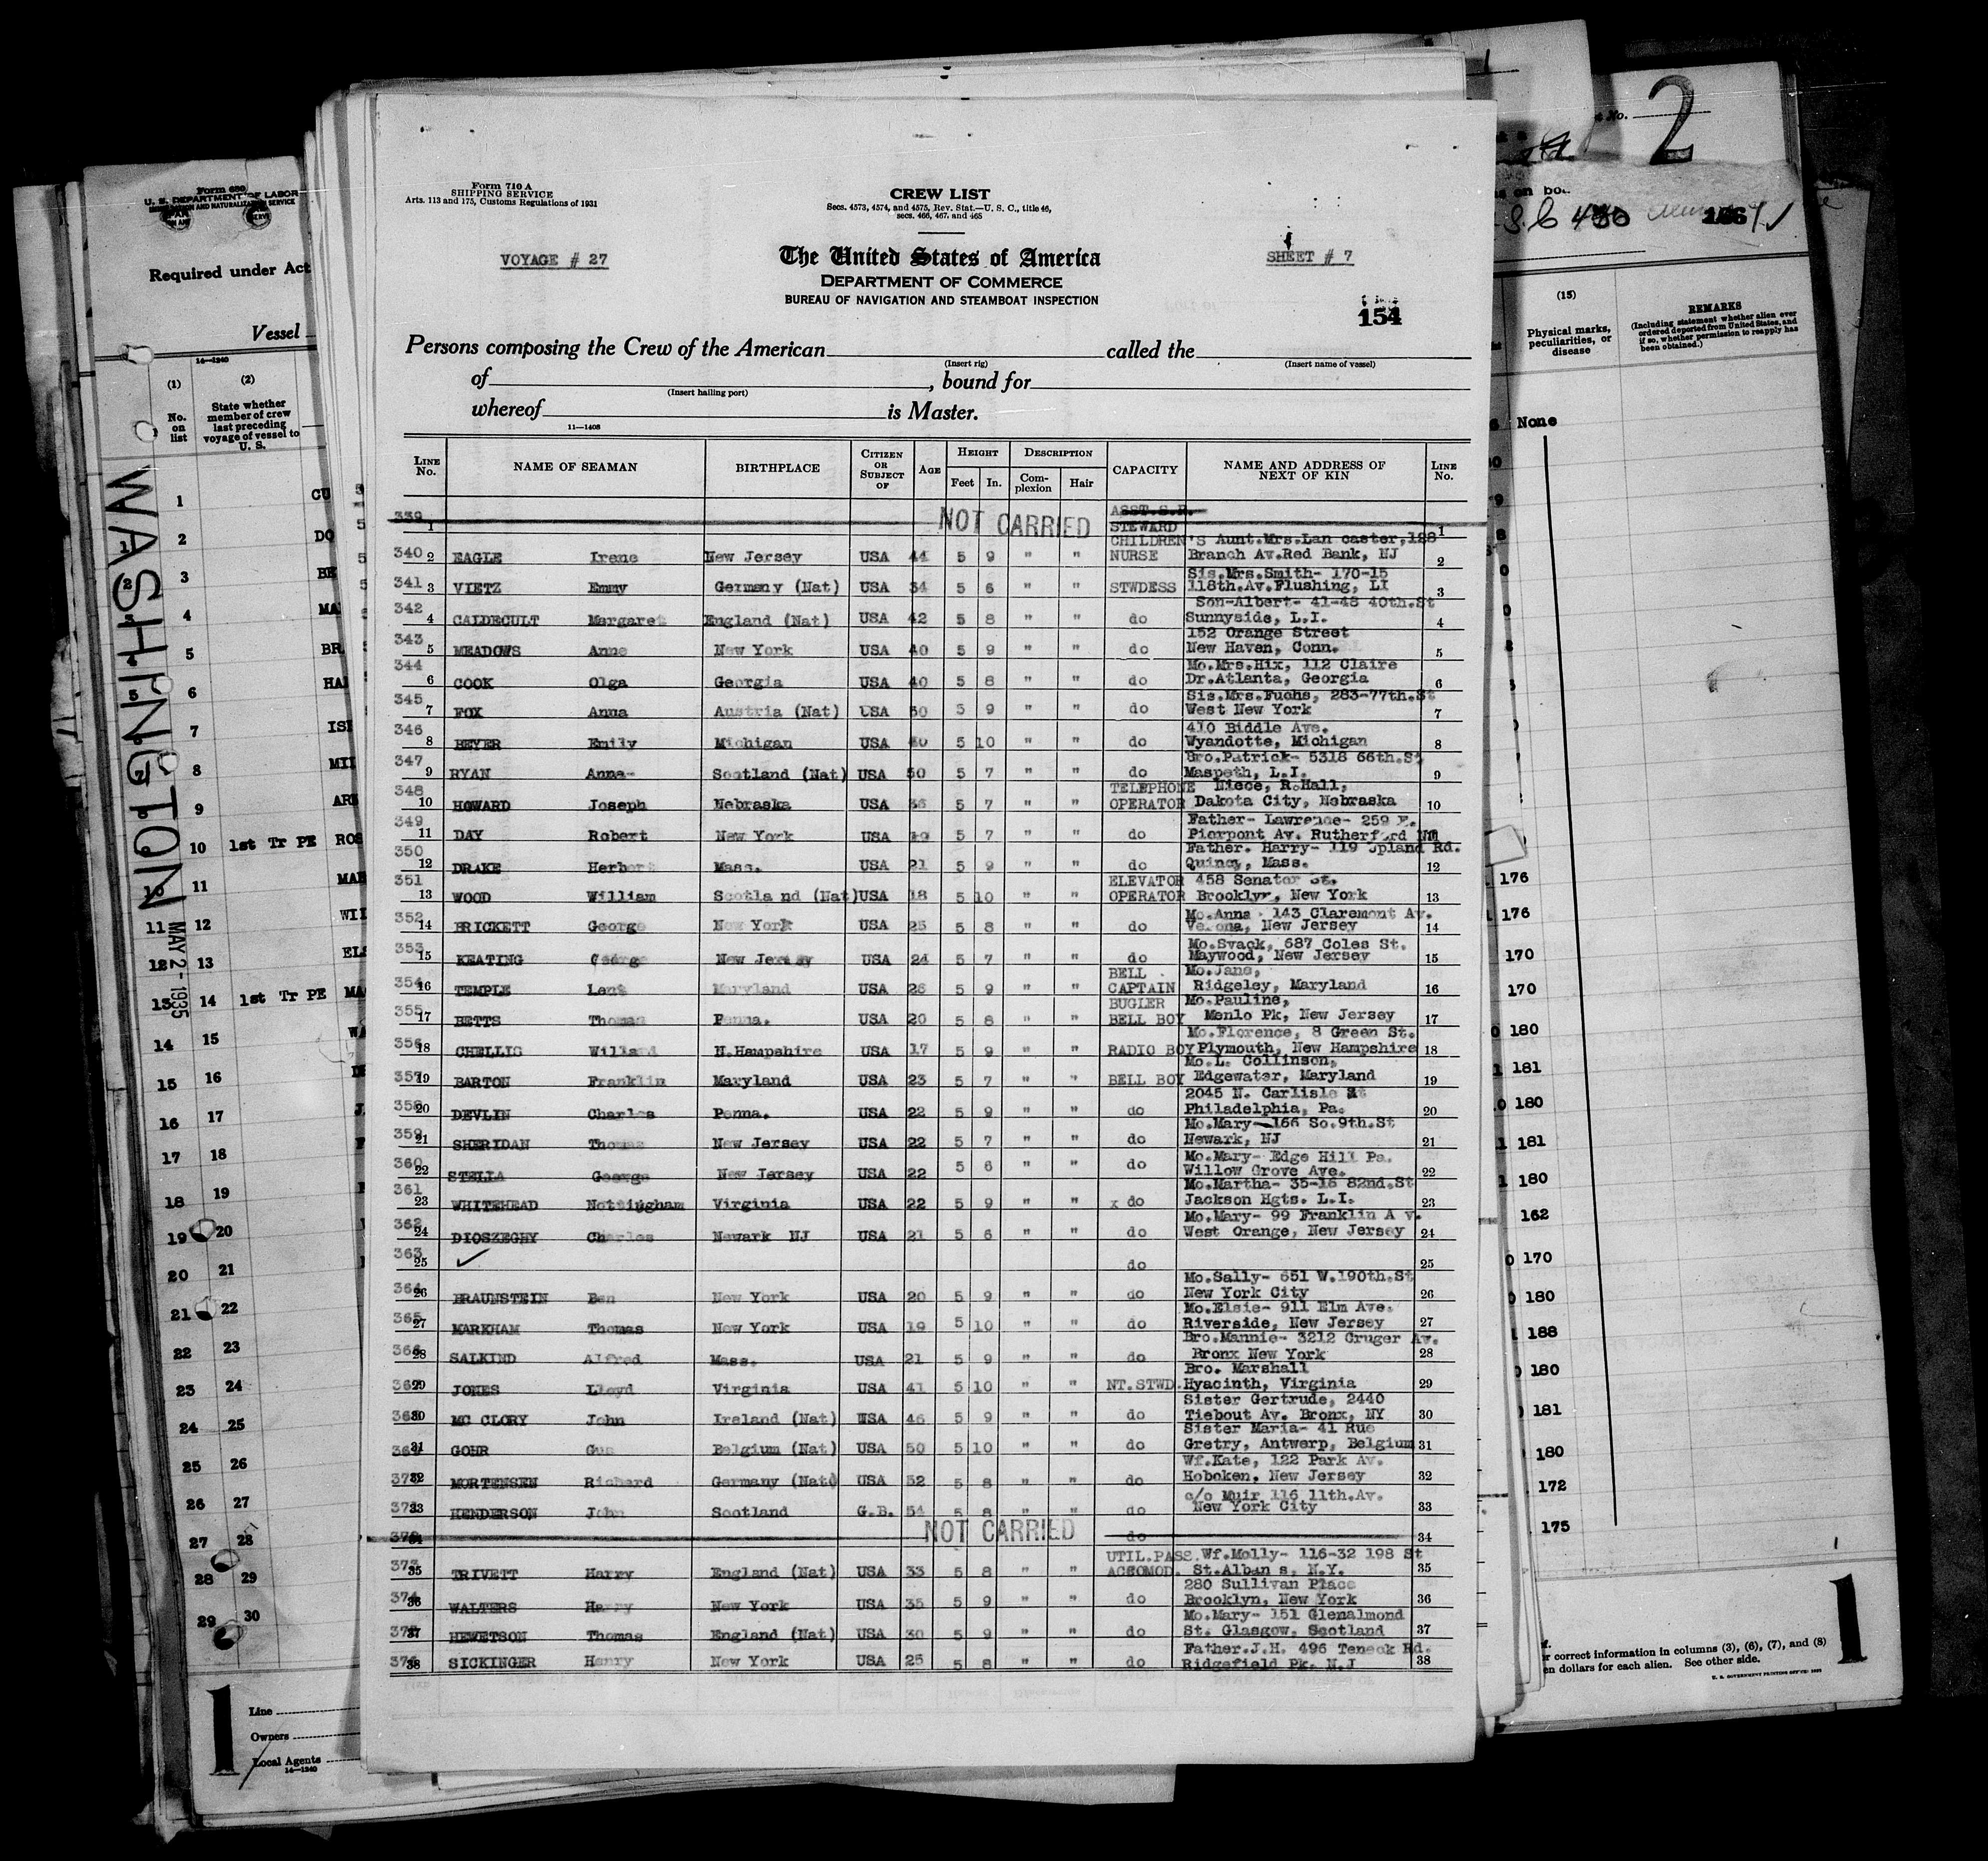 Form 710 A
SHIPPING SERVICE
Arts. 113 and 175, Customs Regulations of 1931
CREW LIST
Secs. 4573, 4574, and 4575, Rev. Stat.—U. S. C., title 46,
secs. 466, 467, and 465
VOYAGE # 27
The United States of America
SHEET # 7
DEPARTMENT OF COMMERCE
BUREAU OF NAVIGATION AND STEAMBOAT INSPECTION
154
Persons composing the Crew of the American called the
(Insert rig) (Insert name of vessel)
of , bound for
(Insert hailing port)
whereof is Master.
11—1408
LINE No. NAME OF SEAMAN BIRTHPLACE CITIZEN OR SUBJECT OF AGE HEIGHT Feet In. DESCRIPTION Complexion Hair CAPACITY NAME AND ADDRESS OF NEXT OF KIN LINE No.
339 1 NOT CARRIED ASST.S.R. STEWARD 1
340 2 EAGLE Irene New Jersey USA 44 5 9 " " CHILDREN'S NURSE Aunt.Mrs.Lan caster,128 Branch Av.Red Bank, NJ 2
341 3 VIETZ Emmy Germany (Nat) USA 34 5 6 " " STWDESS Sis.Mrs.Smith- 170-15 118th.Av.Flushing, LI 3
342 4 CALDECULT Margaret England (Nat) USA 42 5 8 " " do Son-Albert- 41-48 40th.St Sunnyside, L.I. 4
343 5 MEADOWS Anne New York USA 40 5 9 " " do 152 Orange Street New Haven, Conn. 5
344 6 COOK Olga Georgia USA 40 5 8 " " do Mo.Mrs.Hix, 112 Claire Dr.Atlanta, Georgia 6
345 7 FOX Anna Austria (Nat) USA 50 5 9 " " do Sis.Mrs.Fuchs, 283-77th.St West New York 7
346 8 BEYER Emily Michigan USA 40 5 10 " " do 410 Biddle Ave. Wyandotte, Michigan 8
347 9 RYAN Anna- Scotland (Nat) USA 50 5 7 " " do Bro.Patrick- 5318 66th.St Maspeth, L.I. 9
348 10 HOWARD Joseph Nebraska USA 36 5 7 " " TELEPHONE OPERATOR Niece, R.Hall, Dakota City, Nebraska 10
349 11 DAY Robert New York USA 19 5 7 " " do Father- Lawrence- 259 E. Pierpont Av. Rutherford NJ
350 12 DRAKE Herbert Mass. USA 21 5 9 " " do Father. Harry- 119 Upland Rd. Quincy, Mass. 12
351 13 WOOD William Scotla nd (Nat) USA 18 5 10 " " ELEVATOR OPERATOR 458 Senator St. Brooklyn, New York 13
352 14 BRICKETT George New York USA 25 5 8 " " do Mo.Anna - 143 Claremont Av. Verona, New Jersey 14
353 15 KEATING George New Jersey USA 24 5 7 " " do Mo.Svack, 687 Coles St. Maywood, New Jersey 15
354 16 TEMPLE Maryland USA 26 5 9 " " BELL CAPTAIN Mo.Jane, Ridgeley, Maryland 16
355 17 BETTS Thomas Penna. USA 20 5 8 " " BUGLER BELL BOY Mo.Pauline, Menlo Pk, New Jersey 17
356 18 CHELLIS Willard N.Hampshire USA 17 5 9 " " RADIO BOY Mo.Florence, 8 Green St. Plymouth, New Hampshire 18
357 19 BARTON Franklin Maryland USA 23 5 7 " " BELL BOY Mo.L. Collinson, Edgewater, Maryland 19
358 20 DEVLIN Charles Penna. USA 22 5 9 " " do 2045 N. Carlisle St Philadelphia, Pa. 20
359 21 SHERIDAN Thomas New Jersey USA 22 5 7 " " do Mo.Mary- 166 So.9th.St Newark, NJ 21
360 22 STELLA George New Jersey USA 22 5 6 " " do Mo.Mary- Edge Hill Pa. Willow Grove Ave. 22
361 23 WHITEHEAD Nottingham Virginia USA 22 5 9 " " x do Mo.Martha- 35-16 82nd.St Jackson Hgts. L.I. 23
362 24 DIOSZEGHY Charles Newark NJ USA 21 5 6 " " do Mo.Mary- 99 Franklin A v. West Orange, New Jersey 24
363 25 ✓ do 25
364 26 BRAUNSTEIN Ben New York USA 20 5 9 " " do Mo.Sally- 651 W.190th.St New York City 26
365 27 MARKHAM Thomas New York USA 19 5 10 " " do Mo.Elsie- 911 Elm Ave. Riverside, New Jersey 27
366 28 SALKIND Alfred Mass. USA 21 5 9 " " do Bro.Mannie- 3212 Cruger Av. Bronx New York 28
367 29 JONES Lloyd Virginia USA 41 5 10 " " NT.STWD. Bro. Marshall Hyacinth, Virginia 29
368 30 MC CLORY John Ireland (Nat) USA 46 5 9 " " do Sister Gertrude, 2440 Tiebout Av. Bronx, NY 30
369 31 GOHR Gus Belgium (Nat) USA 50 5 10 " " do Sister Maria- 41 Rue Gretry, Antwerp, Belgium 31
370 32 MORTENSEN Richard Germany (Nat) USA 52 5 8 " " do Wf.Kate, 122 Park Av. Hoboken, New Jersey 32
371 33 HENDERSON John Scotland G.B. 54 5 8 " " do c/o Muir 116 11th.Av. New York City 33
372 34 NOT CARRIED do 34
373 35 TRIVETT Harry England (Nat) USA 33 5 8 " " UTIL.PASS. ACCOMOD. Wf.Molly- 116-32 198 St St.Alban s, N.Y. 35
374 36 WALTERS Harry New York USA 35 5 9 " " do 280 Sullivan Place Brooklyn, New York 36
375 37 HEWETSON Thomas England (Nat) USA 30 5 9 " " do Mo.Mary- 151 Glenalmond St. Glasgow, Scotland 37
376 38 SICKINGER Henry New York USA 25 5 8 " " do Father.J.H. 496 Teneck Rd. Ridgefield Pk. N.J 38
Form 680
U. S. DEPARTMENT OF LABOR
Required under Act
Vessel
14—1240
(1) (2)
No. on list
State whether member of crew last preceding voyage of vessel to U. S.
WASHINGTON
MAY 2-1935
1 CU
2 DO
3 BE
4 MA
5 BR
6 HA
7 ISI
8 MIL
9 ARN
10 1st Tr PE ROS
11 MAR
12 WII
13 ELS
14 1st Tr PE MA
15 WA
16
17
18
19
20
21
22
23
24
25
26
27
28
29
30
1
Line
Owners
Local Agents
14—1240
2
No.
(15)
Physical marks, peculiarities, or disease
REMARKS
(Including statement whether alien ever ordered deported from United States, and if so, whether permission to reapply has been obtained.)
None
176
176
170
170
180
181
180
181
180
162
170
180
188
180
181
180
172
175
correct information in columns (3), (6), (7), and (8)
en dollars for each alien. See other side.
U. S. GOVERNMENT PRINTING OFFICE
1